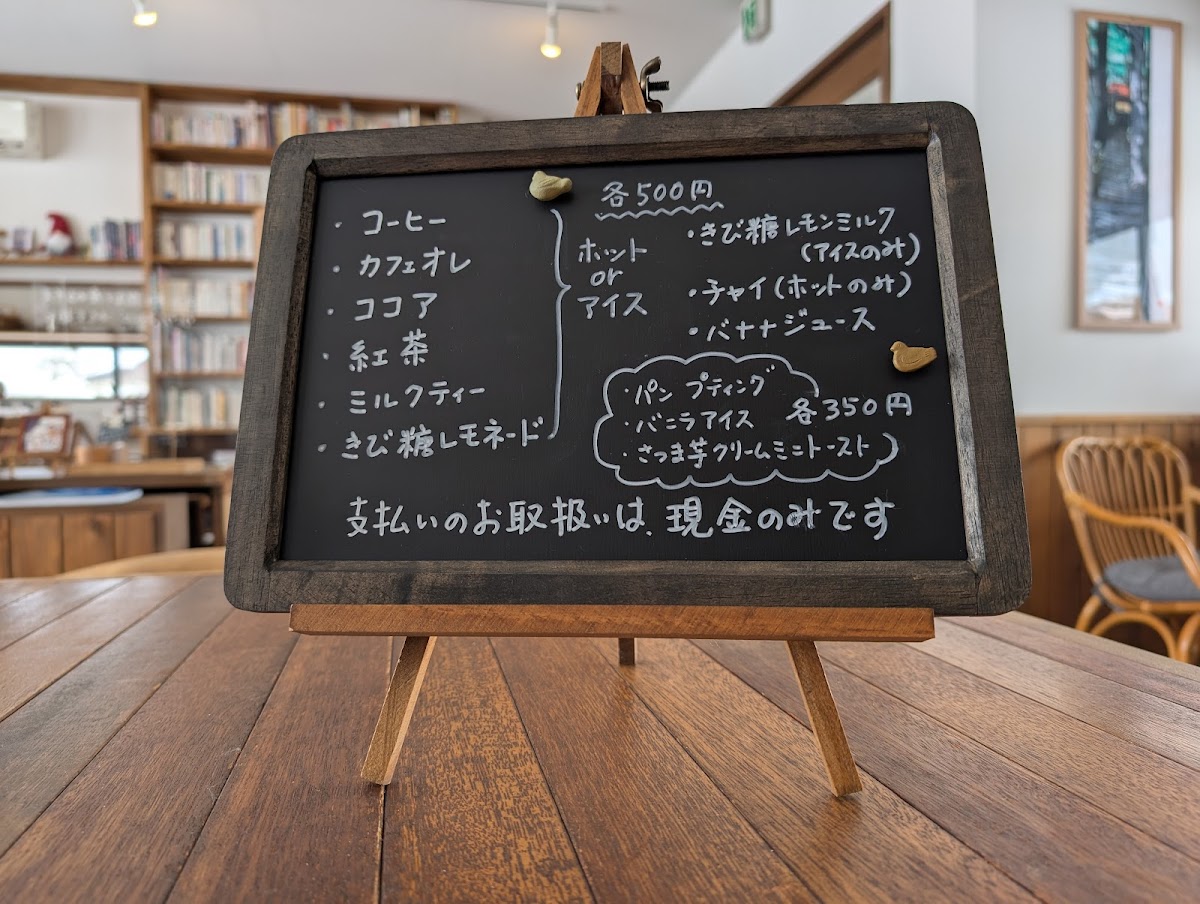 各500円
・コーヒー
・カフェオレ
・ココア
・紅茶
・ミルクティー
・きび糖レモネード
ホット
or
アイス
・きび糖レモンミルク
(アイスのみ)
・チャイ(ホットのみ)
・バナナジュース
・パン プティング
・バニラアイス
各350円
・さつま芋クリームミニトースト
支払いのお取扱いは、現金のみです